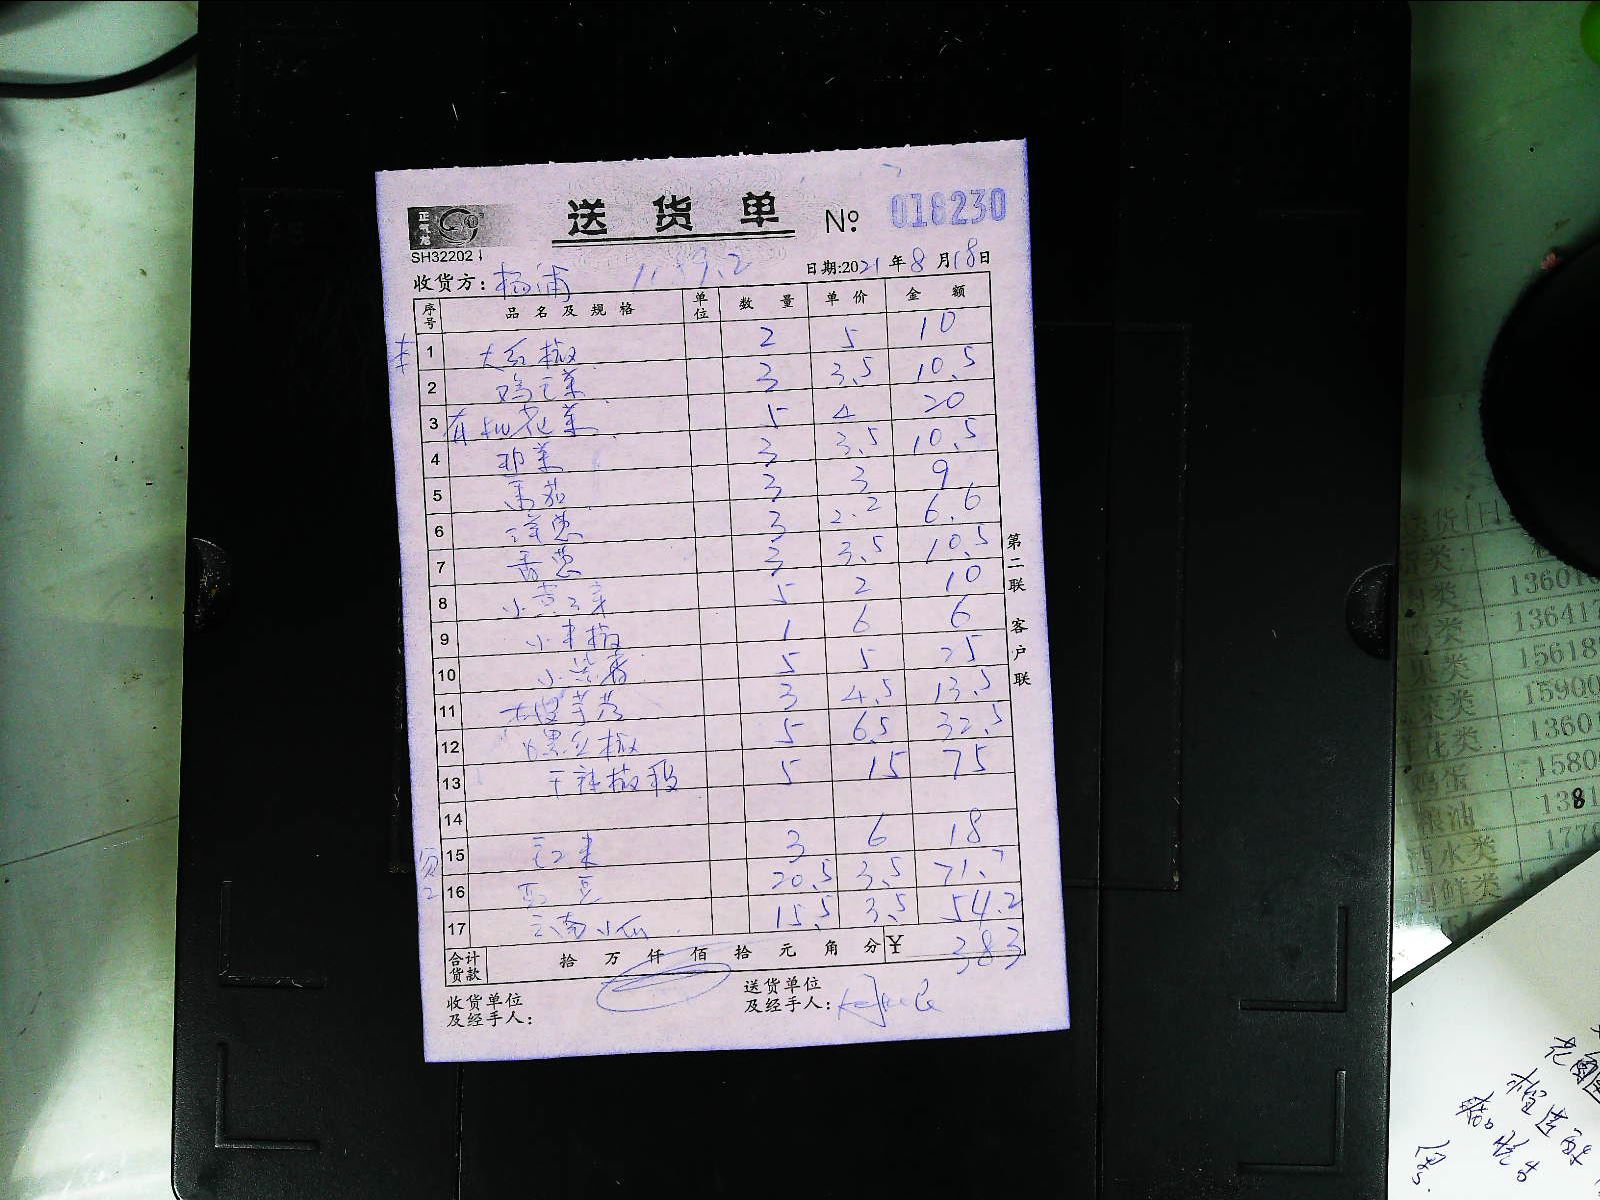 正气龙
送货单 № 018230
SH32202
收货方：杨浦
日期:2021年8月18日
序号 品名及规格 单位 数量 单价 金额
1 大红椒 2 5 10
2 鸡毛菜 3 3.5 10.5
3 有机花菜 5 4 20
4 3 3.5 10.5
5 番茄 3 3 9
6 洋葱 3 2.2 6.6
7 香葱 3 3.5 10.5
8 5 2 10
9 小米椒 1 6 6
10 5 5 25
11 3 4.5 13.5
12 螺丝椒 5 6.5 32.5
13 干辣椒段 5 15 75
14
15 3 6 18
16 20.5 3.5 71.7
17 云南小瓜 15.5 3.5 54.2
合计货款 拾 万 仟 佰 拾 元 角 分 ¥ 383
收货单位及经手人：
送货单位及经手人：
第二联 客户联
送货 日
类
肉类 1360
类 13641
果类 15618
菜类 15900
花类 1360
鸡蛋 1580
粮油 1381
水类 177
鲜类